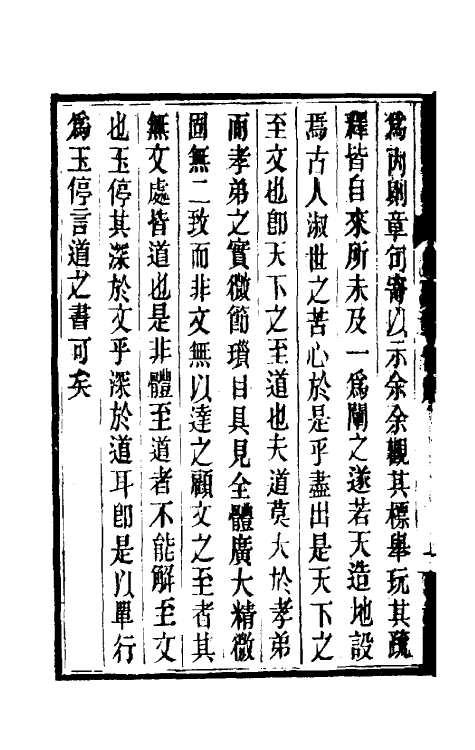 爲內則章句寄以示余余觀其標舉玩其疏
釋皆自來所未及一爲闡之遂若天造地設
焉古人淑世之苦心於是乎盡出是天下之
至文也卽天下之至道也夫道莫大於孝弟
而孝弟之實微節瑣目具見全體廣大精微
固無二致而非文無以達之顧文之至者其
無文處皆道也是非體至道者不能解至文
也玉停其深於文乎深於道耳卽是以單行
爲玉停言道之書可矣